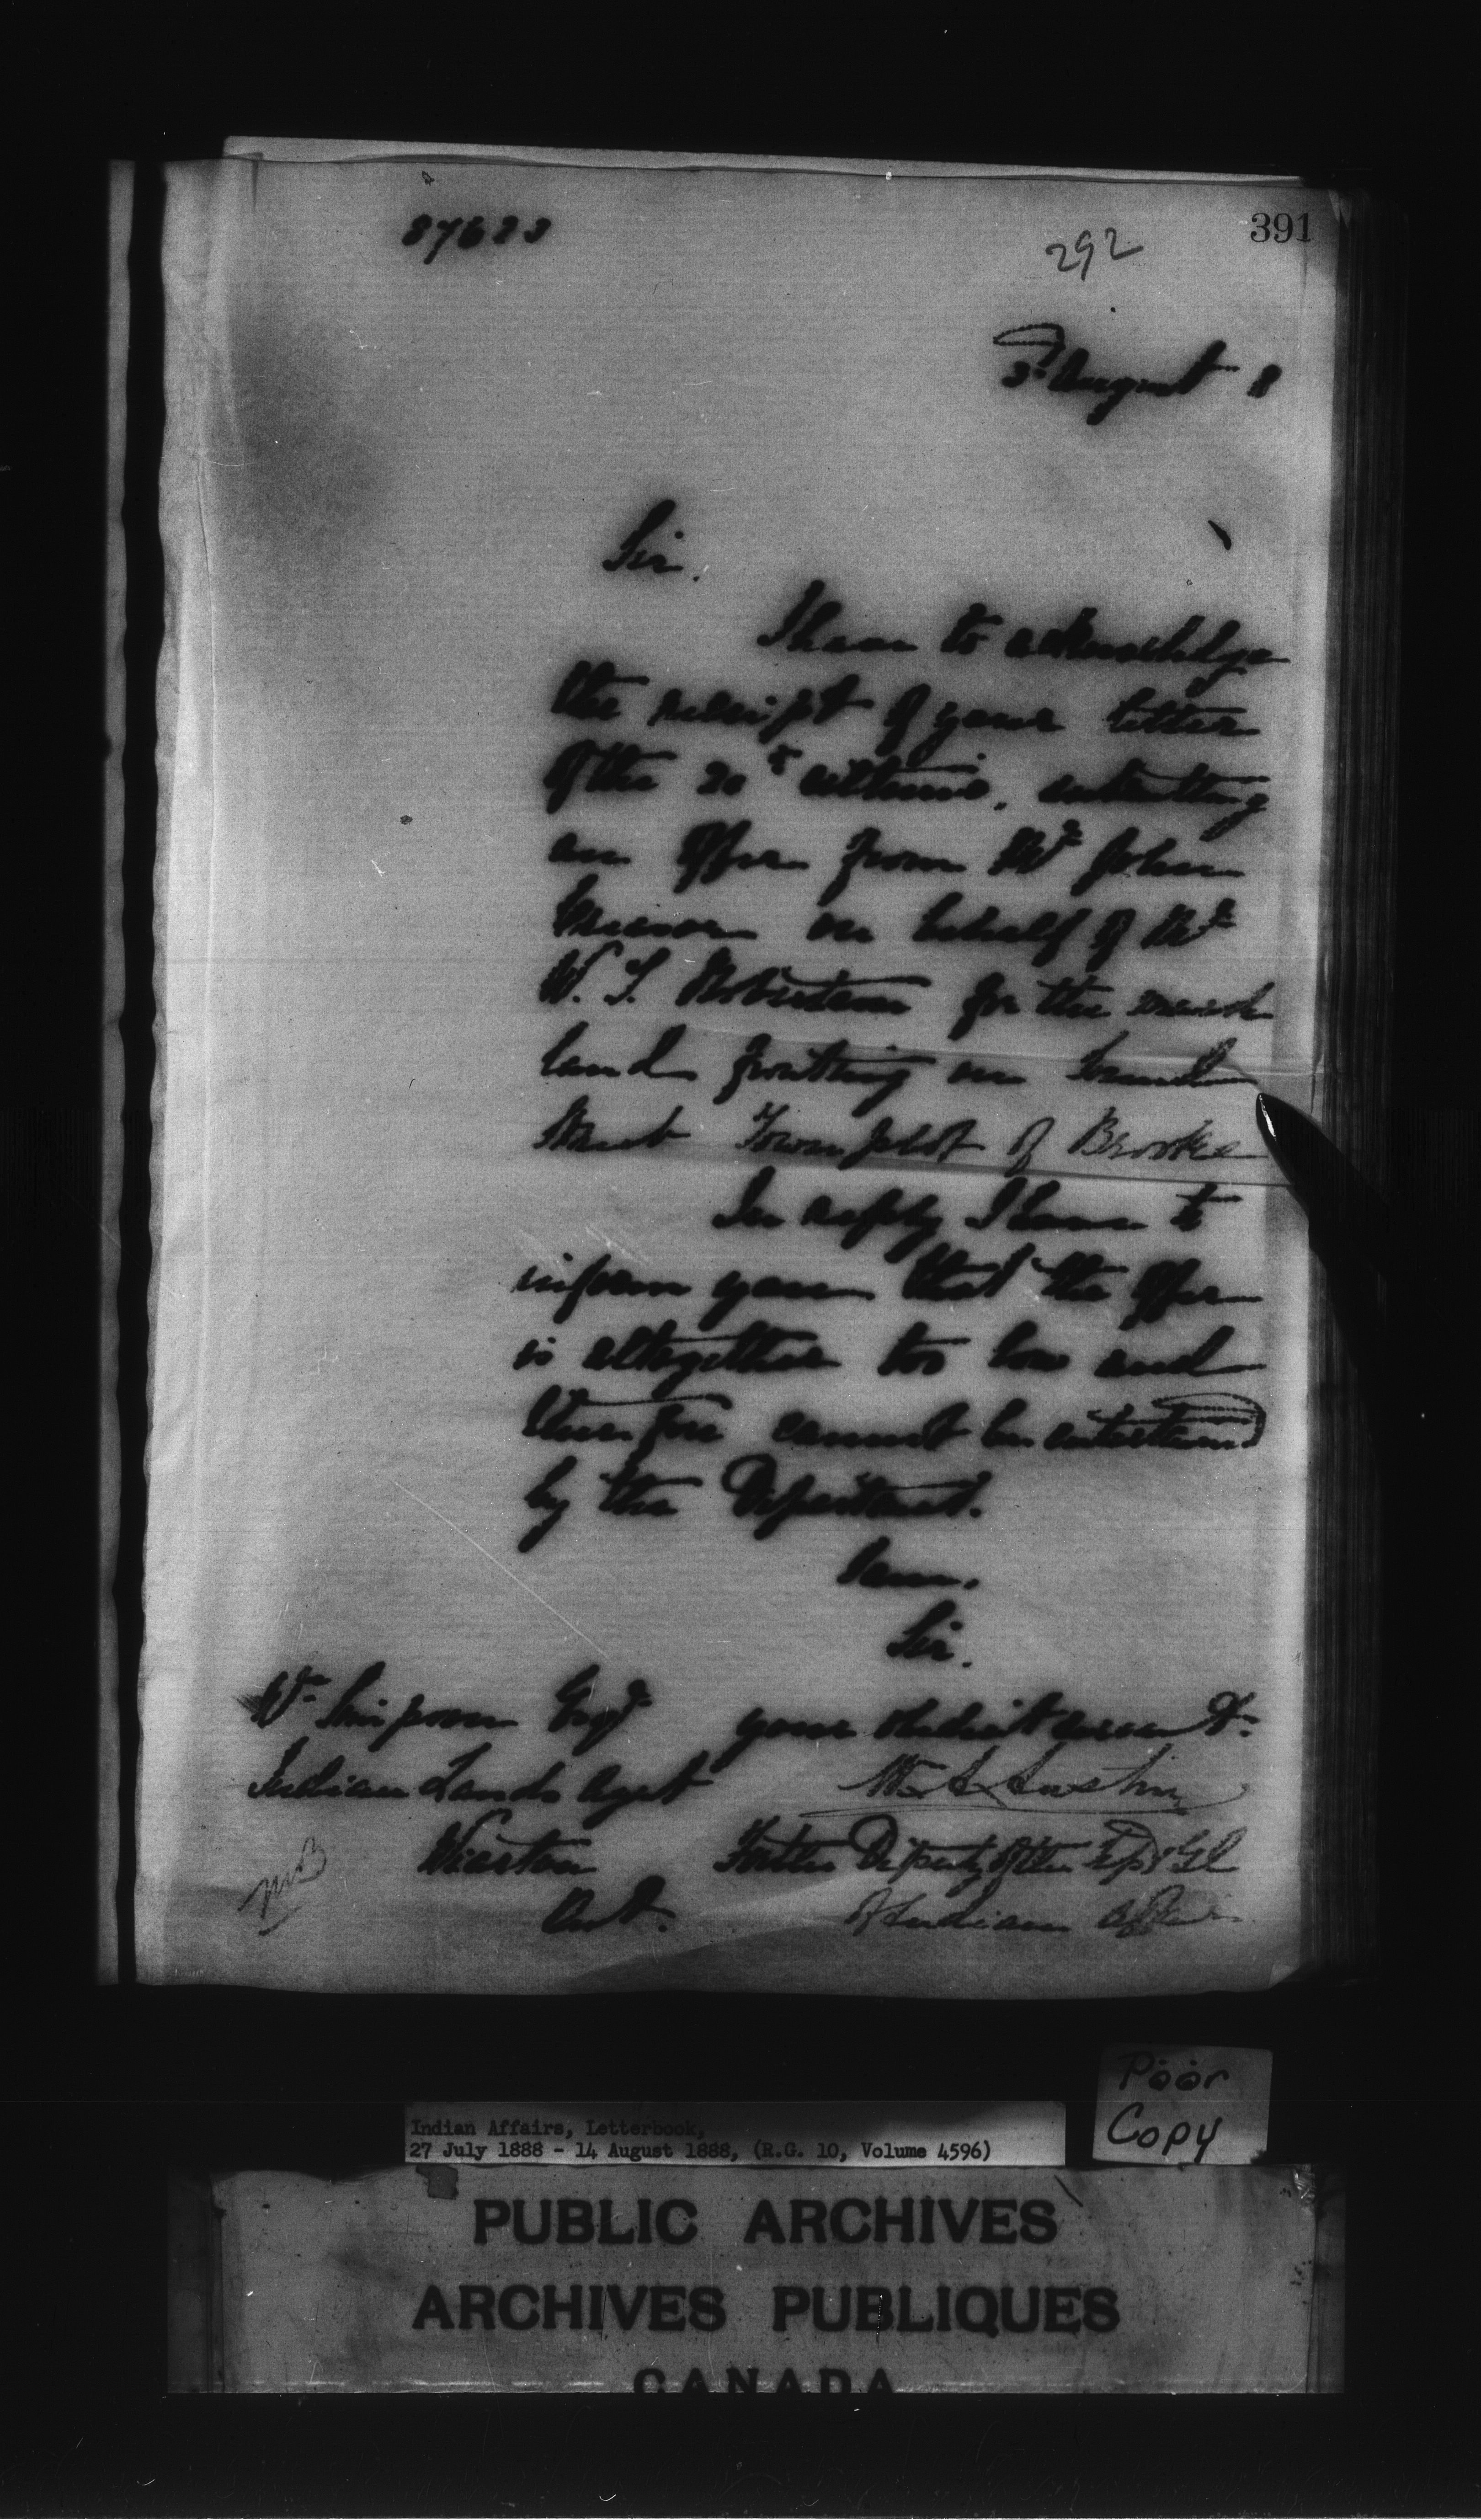 87623
292
391
3rd August 8
Sir.
I have to acknowledge
the receipt of your letter
of the 20th ultimo, submitting
an offer from Mr John
on behalf of Mr
W. S. Robertson for the marsh
land fronting on
Street Town plot of Brooke
In reply I have to
inform you that the offer
is altogether too low and
therefore cannot be entertained
by the Department.
I am,
Sir.
Wm Simpson Esqr your obedient servt.
Indian Lands Agent W A Austin
Wiarton For the Deputy of the Supt Genl
Ont. of Indian Affairs
Poor
Copy
Indian Affairs, Letterbook,
27 July 1888 - 14 August 1888, (R.G. 10, Volume 4596)
PUBLIC ARCHIVES
ARCHIVES PUBLIQUES
CANADA